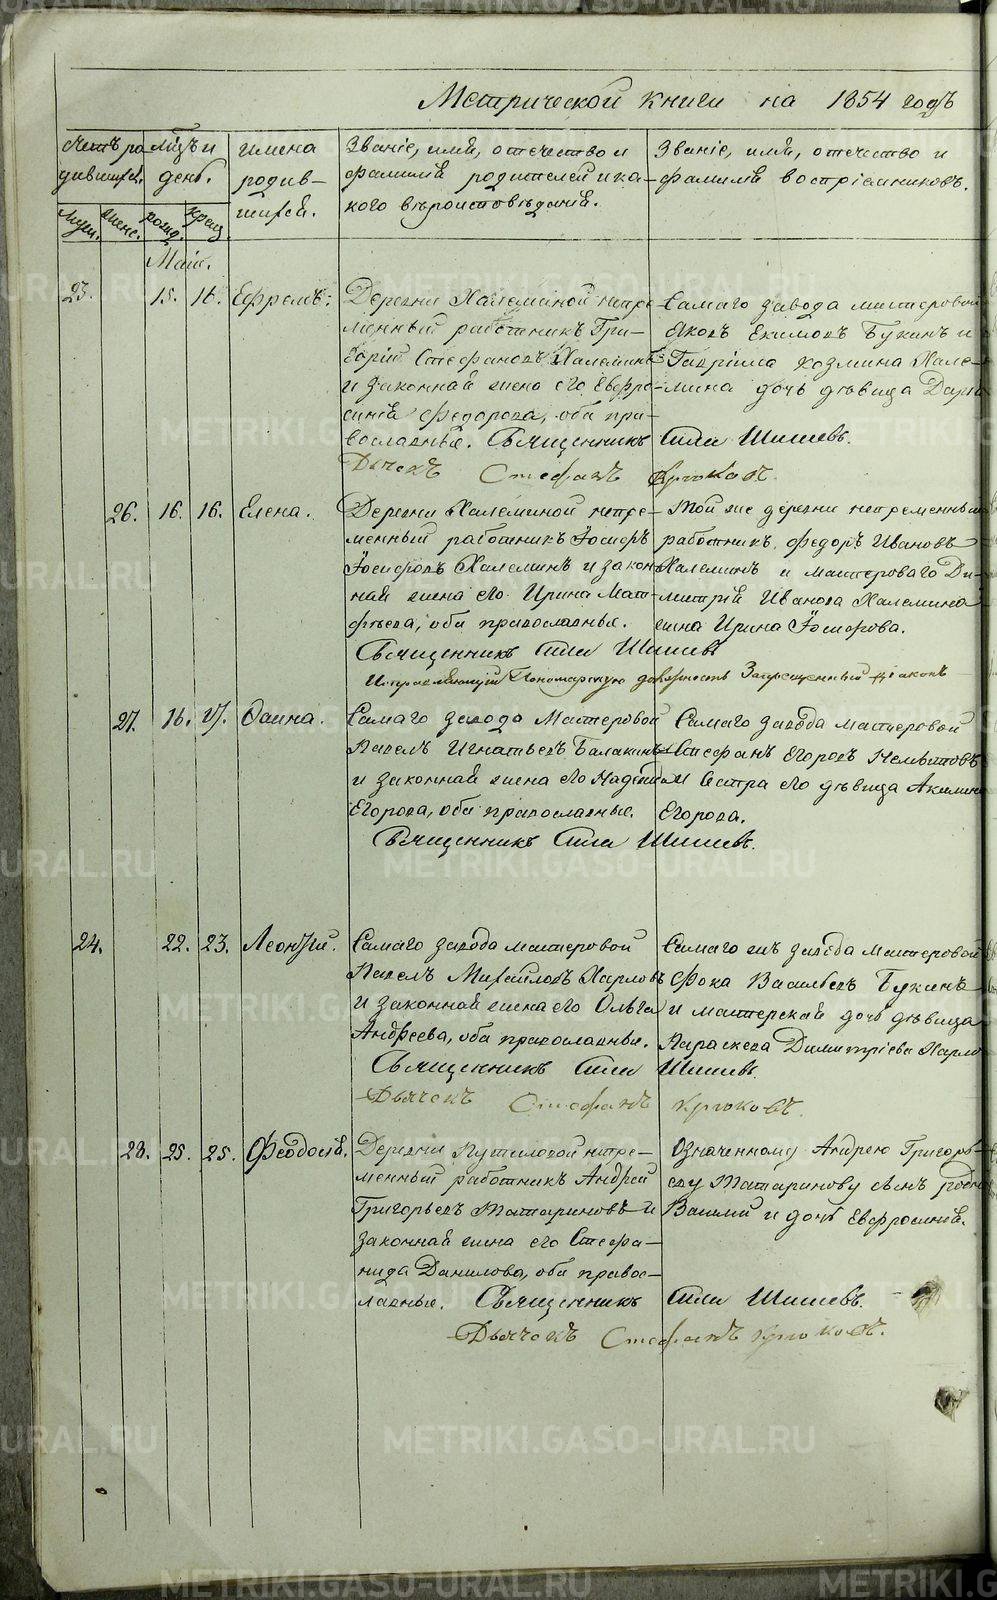 Метрической книги на 1854 годъ
Счетъ ро-
дившихся.
Мѣсяцъ и
день.
имена
родив-
шихся.
Званіе, имя, отечество и
фамилія родителей и ка-
кого вѣроисповѣданія.
Званіе, имя, отечество и
фамилія воспріемниковъ.
муж. жен. рожд. крещ.
Май.
23. 15. 16. Ефремъ:
Деревни Халеминой непре-
менный работникъ Гри-
горій Стефановъ Халеминъ
и законная жена его Евфро-
синія Федорова, оба пра-
вославные. Священникъ Сила Шишевъ.
Самаго завода мастеровой
Яковъ Екимовъ Букинъ и
Гавріила Козмина Хале-
мина дочь дѣвица Дарья
Дьячекъ Стефанъ Крюковъ.
26. 16. 16. Елена.
Деревни Халеминой непре-
менный работникъ Іосифъ
Іосифовъ Халеминъ и закон-
ная жена его Ирина Мат-
фѣева, оба православные.
Той же деревни непременный
работникъ Федоръ Ивановъ
Халеминъ и мастероваго Ди-
митрія Иванова Халемина
жена Ирина Іосифова.
Священникъ Сила Шишевъ
Исправляющій Пономарскую должность Запрещенный діаконъ
27. 16. 17. Фаина.
Самаго завода Мастеровой
Павелъ Игнатьевъ Балакинъ
и законная жена его Надежда
Егорова, оба православные.
Самаго завода мастеровой
Стефанъ Егоровъ
и Сестра его дѣвица Акилина
Егорова.
Священникъ Сила Шишевъ.
24. 22. 23. Леонтій.
Самаго завода мастеровой
Павелъ Михайловъ Харловъ
и законная жена его Ольга
Андреева, оба православные.
Самаго жъ завода мастеровой
Фока Васильевъ Букинъ
и мастерская дочь дѣвица
Параскева Димитріева Харло
Священникъ Сила Шишевъ.
Дьячекъ Стефанъ Крюковъ.
28. 25. 25. Феодосія.
Деревни Путиловой непре-
менный работникъ Андрей
Григорьевъ Татариновъ и
законная жена его Стефа-
нида Данилова, оба правос-
лавные. Священникъ Сила Шишевъ.
Означенному Андрею Григорь-
еву Татаринову сынъ родной
Василій и дочь Евфросинія.
Дьячекъ Стефанъ Крюковъ.
METRIKI.GASO-URAL.RU